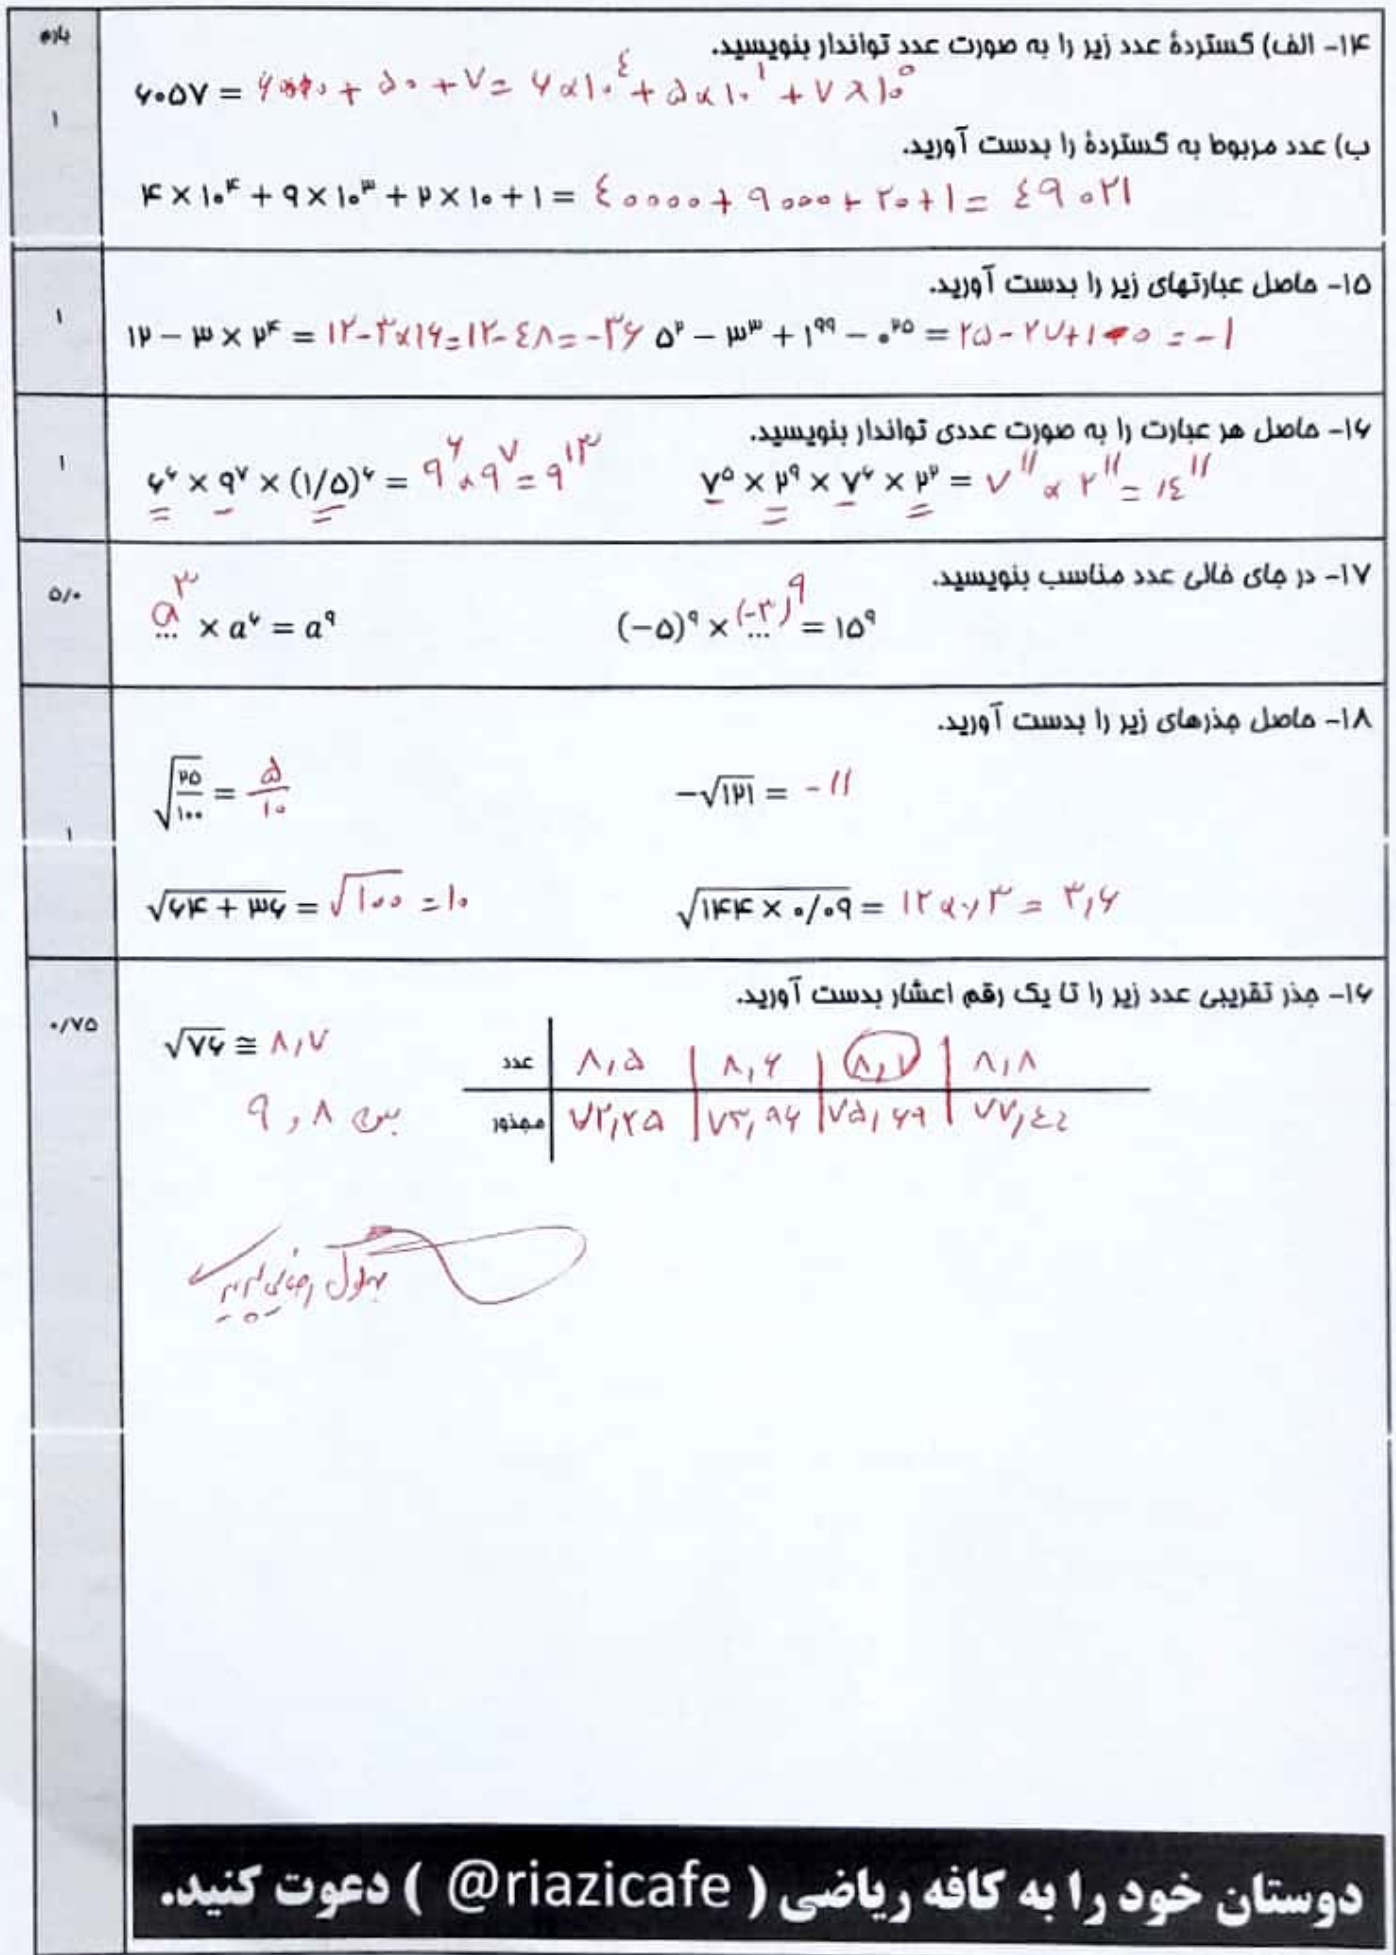 بارم
۱۴- الف) گستردهٔ عدد زیر را به صورت عدد تواندار بنویسید.
۶۰۵۷ = ۶۰۰۰ + ۵۰ + ۷ = ۶×۱۰^٤ + ۵×۱۰^۱ + ۷×۱۰^۰
۱
ب) عدد مربوط به گستردهٔ را بدست آورید.
۴ × ۱۰^۴ + ۹ × ۱۰^۳ + ۲ × ۱۰ + ۱ = ٤۰۰۰۰ + ۹۰۰۰ + ۲۰ + ۱ = ٤۹۰۲۱
۱۵- حاصل عبارتهای زیر را بدست آورید.
۱
۱۲ − ۳ × ۲^۴ = ۱۲-۳×۱۶=۱۲-٤۸=-۳۶ ۵^۲ − ۳^۳ + ۱^۹۹ − ۰^۲۵ = ۲۵-۲۷+۱-۰ = -۱
۱۶- حاصل هر عبارت را به صورت عددی تواندار بنویسید.
۱
۶^۶ × ۹^۷ × (۱/۵)^۶ = ۹^۶ × ۹^۷ = ۹^۱۳ ۷^۵ × ۲^۹ × ۷^۶ × ۲^۲ = ۷^۱۱ × ۲^۱۱ = ۱٤^۱۱
۱۷- در جای خالی عدد مناسب بنویسید.
۵/۰
a^۳ ... × a^۶ = a^۹ (−۵)^۹ × (-۳)^۹ ... = ۱۵^۹
۱۸- حاصل جذرهای زیر را بدست آورید.
√(۲۵/۱۰۰) = ۵/۱۰ −√۱۲۱ = -۱۱
۱
√(۶۴ + ۳۶) = √۱۰۰ = ۱۰ √(۱۴۴ × ۰/۰۹) = ۱۲×۰٫۳ = ۳٫۶
۱۶- جذر تقریبی عدد زیر را تا یک رقم اعشار بدست آورید.
۰/۷۵
√۷۶ ≅ ۸٫۷
عدد ۸٫۵ ۸٫۶ ۸٫۷ ۸٫۸
بین ۸ و ۹
مجذور ۷۲٫۲۵ ۷۳٫۹۶ ۷۵٫۶۹ ۷۷٫٤٤
دوستان خود را به کافه ریاضی ( @riazicafe ) دعوت کنید.